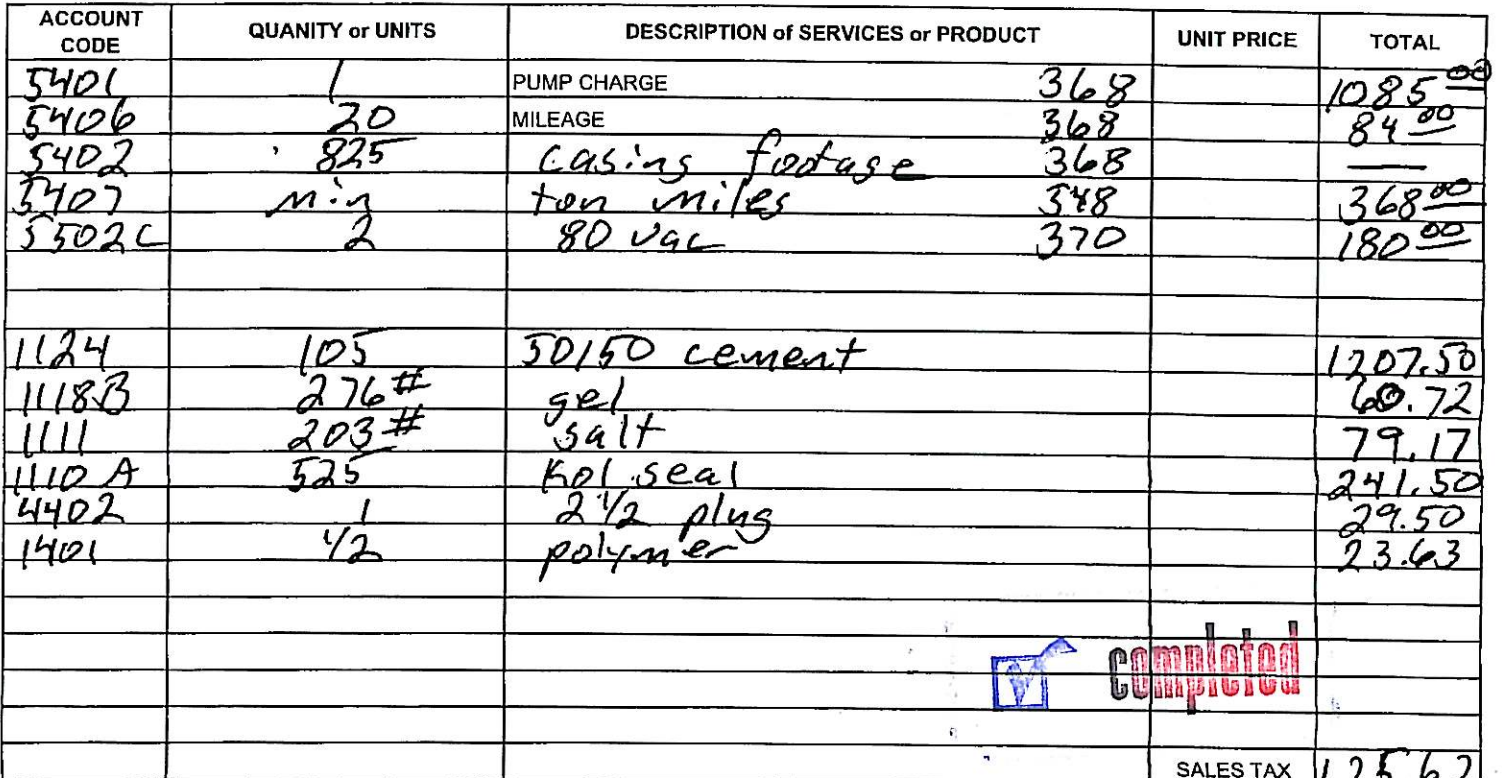 ACCOUNT CODE QUANITY or UNITS DESCRIPTION of SERVICES or PRODUCT UNIT PRICE TOTAL
5401 1 PUMP CHARGE 368 1085 00
5406 20 MILEAGE 368 84 00
5402 825 casing footage 368 —
5407 min ton miles 548 368 00
5502C 2 80 vac 370 180 00
1124 105 50/50 cement 1207.50
1118B 276# gel 60.72
1111 203# salt 79.17
1110A 525 Kol seal 241.50
4402 1 2 1/2 plug 29.50
1401 1/2 polymer 23.63
completed
SALES TAX 125.62